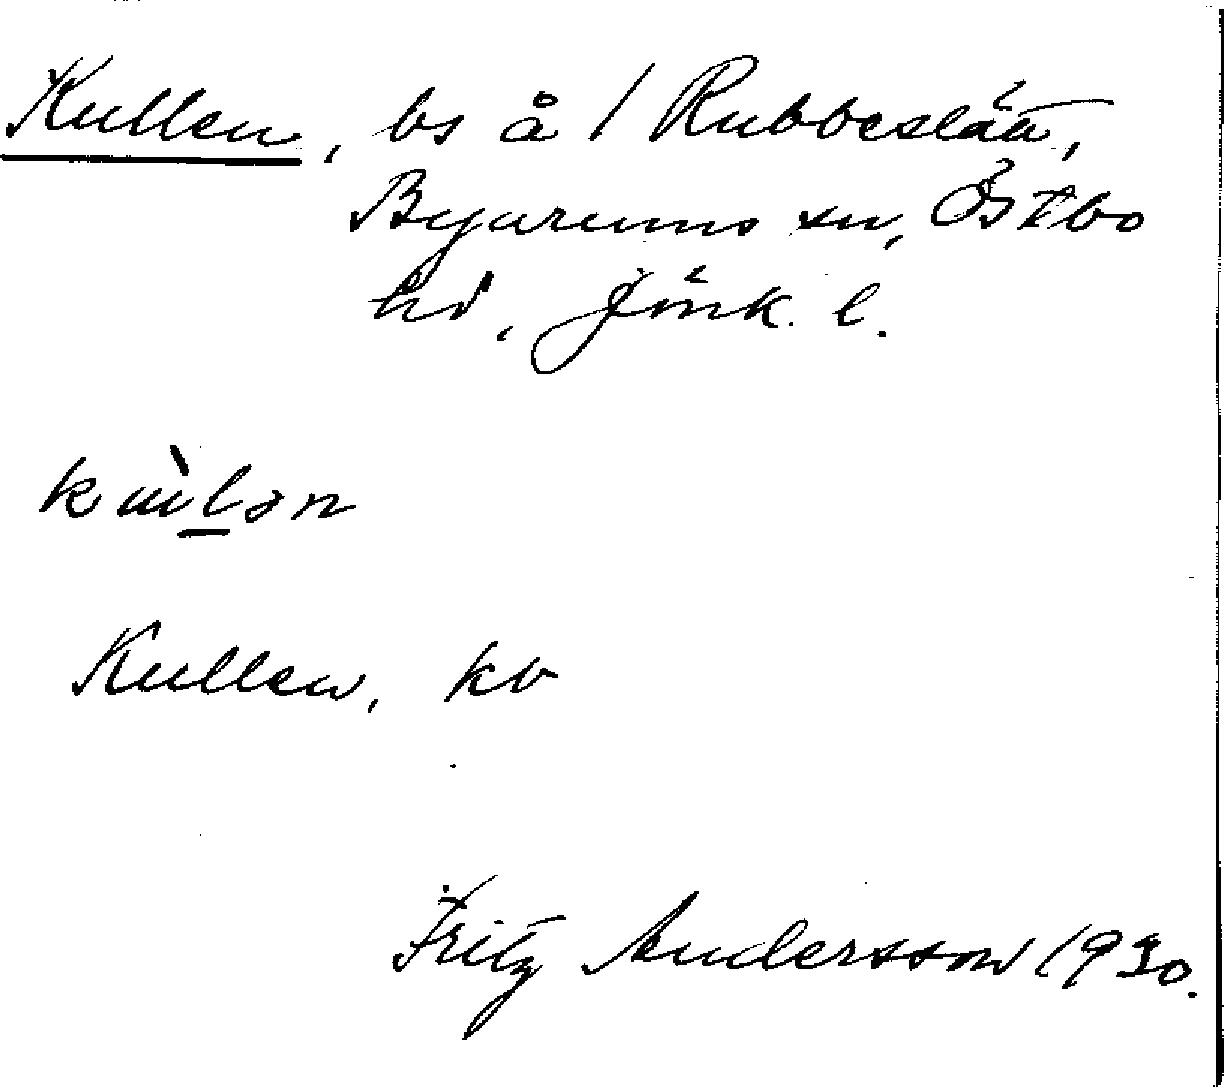 Kullen, bs å 1 Rubbeslätt,
Byarums sn, Östbo
hd, Jönk. l.
kùlən
Kullen, kb
Fritz Andersson 1930.